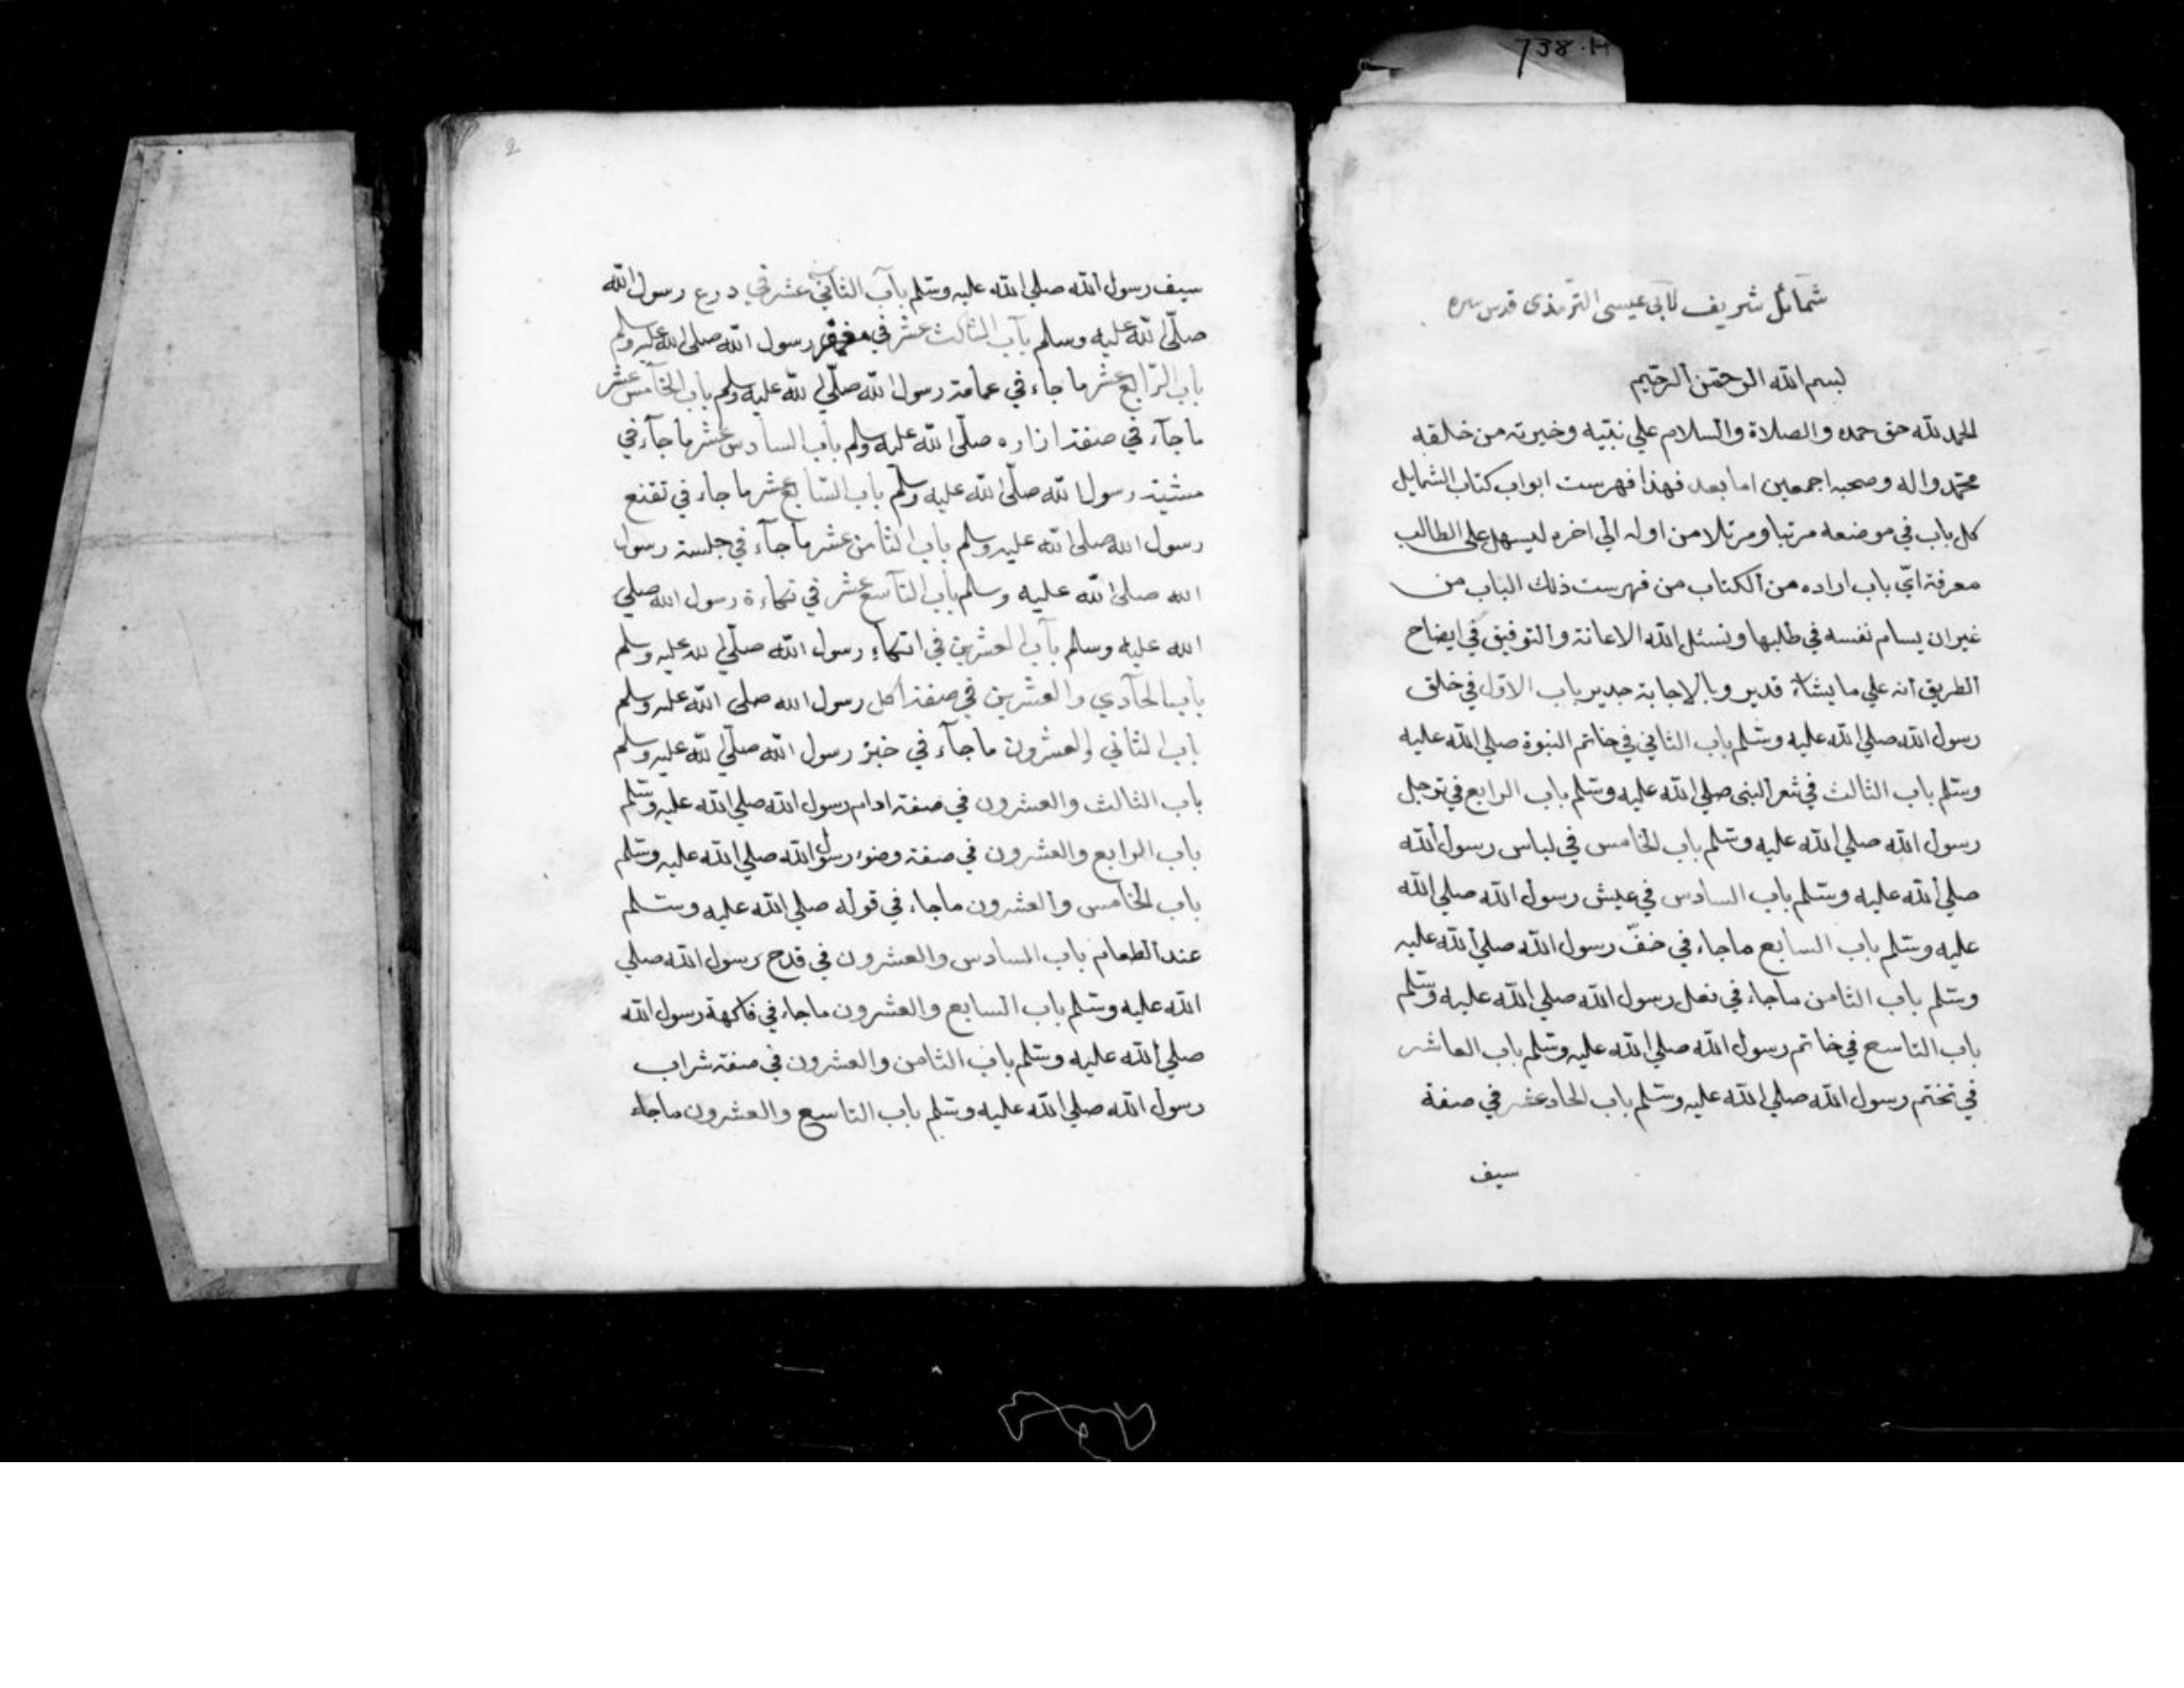 738.H
شمائل شريف لأبي عيسى الترمذى قدس سره
بسم الله الرحمن الرحيم
الحمد لله حق حمده والصلاة والسلام علي نبيه وخيرته من خلقه
محمد واله وصحبه اجمعين اما بعد فهذا فهرست ابواب كتاب الشمايل
كل باب في موضعه مرتبا ومرتلا من اوله الي اخره ليسهل على الطالب
معرفة ايّ باب اراده من الكتاب من فهرست ذلك الباب من
غير ان يسام نفسه في طلبها ونسئل الله الاعانة والتوفيق في ايضاح
الطريق انه علي ما يشاء قدير وبالاجابة جدير باب الاول في خلق
رسول الله صلي الله عليه وسلم باب الثاني في خاتم النبوة صلي الله عليه
وسلم باب الثالث في شعر النبى صلي الله عليه وسلم باب الرابع في ترجل
رسول الله صلي الله عليه وسلم باب الخامس في لباس رسول الله
صلي الله عليه وسلم باب السادس في عيش رسول الله صلي الله
عليه وسلم باب السابع ماجاء في خفّ رسول الله صلي الله عليه
وسلم باب الثامن ماجاء في نعل رسول الله صلي الله عليه وسلم
باب التاسع في خاتم رسول الله صلي الله عليه وسلم باب العاشر
في تختم رسول الله صلي الله عليه وسلم باب الحاد عشر في صفة
سيف
2
سيف رسول الله صلي الله عليه وسلم باب الثاني عشر في درع رسول الله
صلّي الله عليه وسلم باب الثالث عشر في مغفر رسول الله صلى الله عليه وسلم
باب الرّابع عشر ما جاء في عمامة رسول الله صلّي الله عليه وسلم باب الخامس عشر
ما جاء في صفة ازاره صلّى الله عليه وسلم باب السادس عشر ما جآء في
مشية رسول الله صلّى الله عليه وسلم باب السّابع عشر ما جاء في تقنع
رسول الله صلى الله عليه وسلم باب الثامن عشر ما جآء في جلسة رسول
الله صلى الله عليه وسلم باب التآسع عشر في تكاءة رسول الله صلي
الله عليه وسلم بآب العشرين في اتكاء رسول الله صلّي الله عليه وسلم
باب الحآدي والعشرين في صفة اكل رسول الله صلى الله عليه وسلم
باب الثاني والعشرون ما جآء في خبز رسول الله صلّي الله عليه وسلم
باب الثالث والعشرون في صفة ادام رسول الله صلي الله عليه وسلم
باب الرابع والعشرون في صفة وضوء رسول الله صلي الله عليه وسلم
باب الخامس والعشرون ماجاء في قوله صلي الله عليه وسلم
عند الطعام باب السادس والعشرون في قدح رسول الله صلي
الله عليه وسلم باب السابع والعشرون ماجاء في فاكهة رسول الله
صلي الله عليه وسلم باب الثامن والعشرون في صفة شراب
رسول الله صلي الله عليه وسلم باب التاسع والعشرون ماجاء